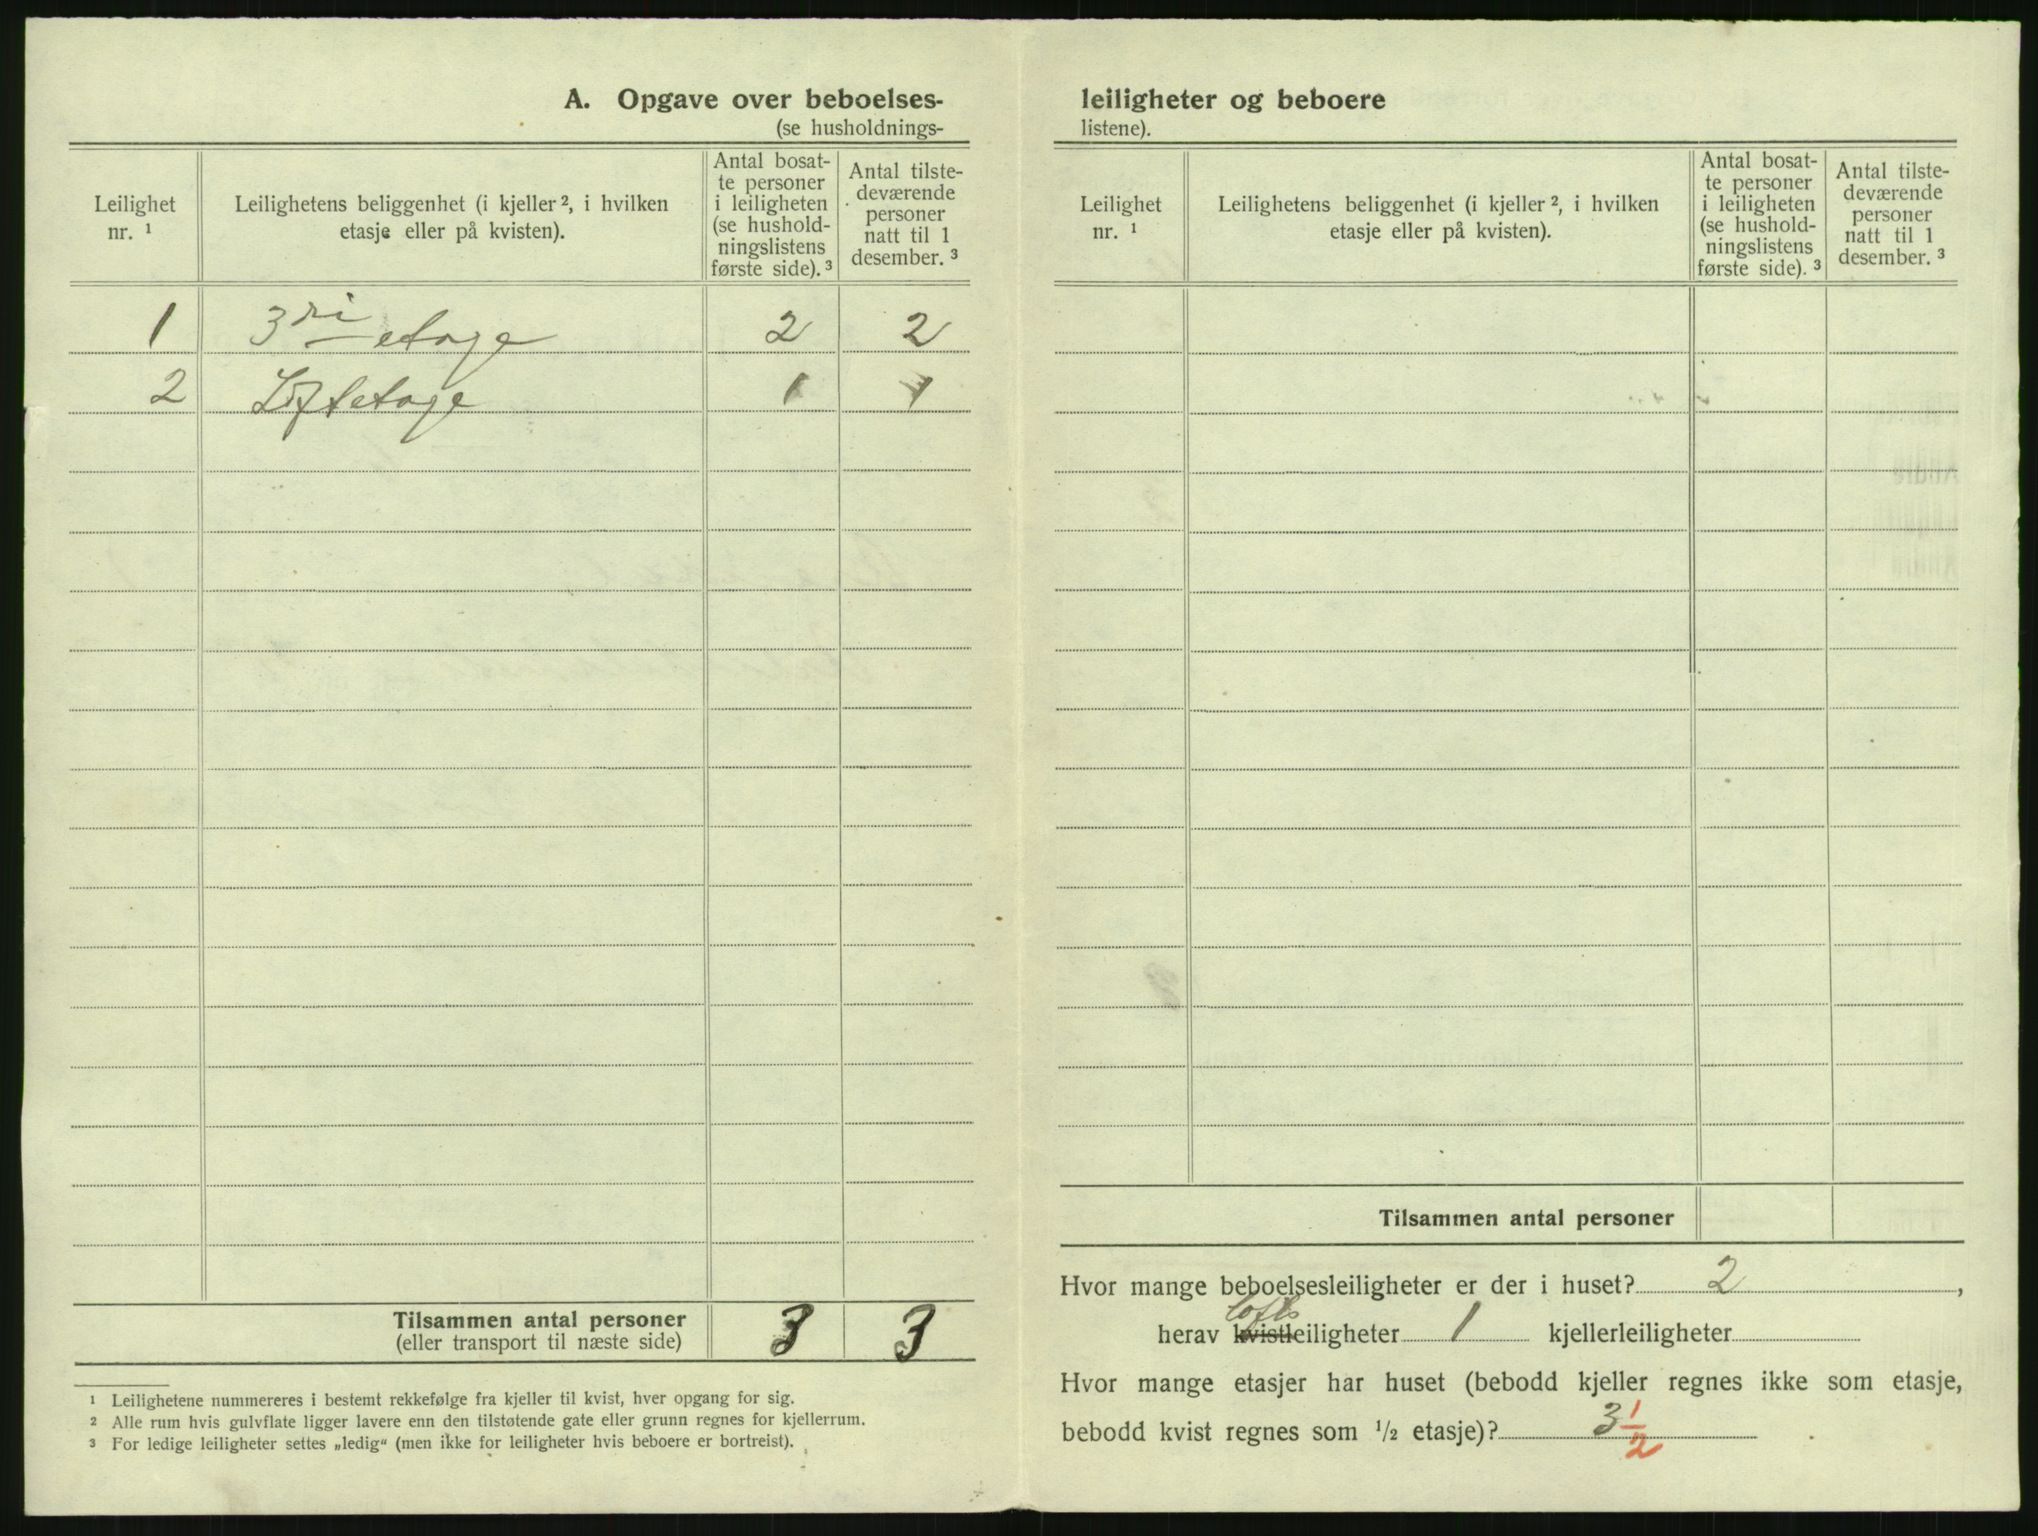 A. Opgave over beboelses-
(se husholdnings-
Leilighet
nr. ¹
Leilighetens beliggenhet (i kjeller ², i hvilken
etasje eller på kvisten).
Antal bosat-
te personer
i leiligheten
(se hushold-
ningslistens
første side). ³
Antal tilste-
deværende
personer
natt til 1
desember. ³
1 3 etage 2 2
2 Loftetage 1 1
Tilsammen antal personer 3 3
(eller transport til næste side)
¹ Leilighetene nummereres i bestemt rekkefølge fra kjeller til kvist, hver opgang for sig.
² Alle rum hvis gulvflate ligger lavere enn den tilstøtende gate eller grunn regnes for kjellerrum.
³ For ledige leiligheter settes „ledig“ (men ikke for leiligheter hvis beboere er bortreist).
leiligheter og beboere
listene).
Leilighet
nr. ¹
Leilighetens beliggenhet (i kjeller ², i hvilken
etasje eller på kvisten).
Antal bosat-
te personer
i leiligheten
(se hushold-
ningslistens
første side). ³
Antal tilste-
deværende
personer
natt til 1
desember. ³
Tilsammen antal personer
Hvor mange beboelsesleiligheter er der i huset? 2,
lofts
herav kvistleiligheter 1 kjellerleiligheter
Hvor mange etasjer har huset (bebodd kjeller regnes ikke som etasje,
bebodd kvist regnes som ½ etasje)? 3 ½